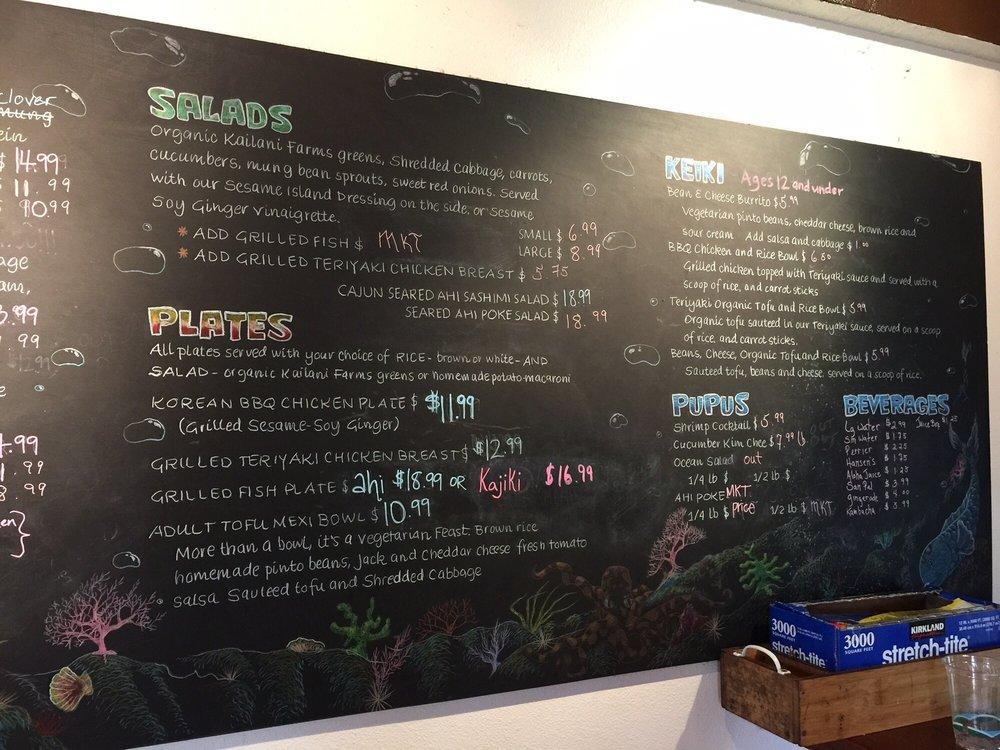 Clover
Mung
ein
$ 14.99
$ 11.99
$ 10.99
age
am,
3.99
.99
4.99
1.99
8.99
SALADS
Organic Kailani Farms greens, Shredded Cabbage, carrots,
cucumbers, mung bean sprouts, sweet red onions. Served
with our Sesame Island Dressing on the side, or Sesame
Soy Ginger vinaigrette.
SMALL $ 6.99
LARGE $ 8.99
* ADD GRILLED FISH $ MKT
* ADD GRILLED TERIYAKI CHICKEN BREAST $ 5.75
CAJUN SEARED AHI SASHIMI SALAD $ 18.99
SEARED AHI POKE SALAD $ 18.99
PLATES
All plates served with your choice of RICE - brown or white - AND
SALAD - organic Kailani Farms greens or homemade potato-macaroni
KOREAN BBQ CHICKEN PLATE $ $11.99
(Grilled Sesame-Soy Ginger)
GRILLED TERIYAKI CHICKEN BREAST $ $12.99
GRILLED FISH PLATE $ ahi $18.99 OR Kajiki $16.99
ADULT TOFU MEXI BOWL $ 10.99
More than a bowl, it's a vegetarian Feast. Brown rice
homemade pinto beans, Jack and cheddar cheese fresh tomato
salsa Sauteed tofu and Shredded Cabbage
KEIKI Ages 12 and under
Bean & Cheese Burrito $ 5.99
Vegetarian pinto beans, cheddar cheese, brown rice and
sour cream Add salsa and cabbage $ 1.00
BBQ Chicken and Rice Bowl $ 6.50
Grilled chicken topped with Teriyaki sauce and served with a
scoop of rice, and carrot sticks
Teriyaki Organic Tofu and Rice Bowl $ 5.99
Organic tofu sauteed in our Teriyaki sauce, served on a scoop
of rice, and carrot sticks.
Beans, Cheese, Organic Tofu and Rice Bowl $ 5.99
Sauteed tofu, beans and cheese, served on a scoop of rice.
PUPUS
Shrimp Cocktail $ 5.99
Cucumber Kim Chee $ 7.99 lb
Ocean Salad out
1/4 lb $ 1/2 lb $
AHI POKE MKT
1/4 lb $ Price 1/2 lb $ MKT
BEVERAGES
Lg Water $ 2.99
Sm Water $ 1.75
Perrier $ 2.25
Hansen's $ 1.75
Aloha Juice $ 1.25
San Pal $ 3.99
gingerade $ 5.00
Kombucha $ 5.99
3000
SQUARE FEET
stretch-tite
3000
SQUARE FEET
KIRKLAND
stretch-tite